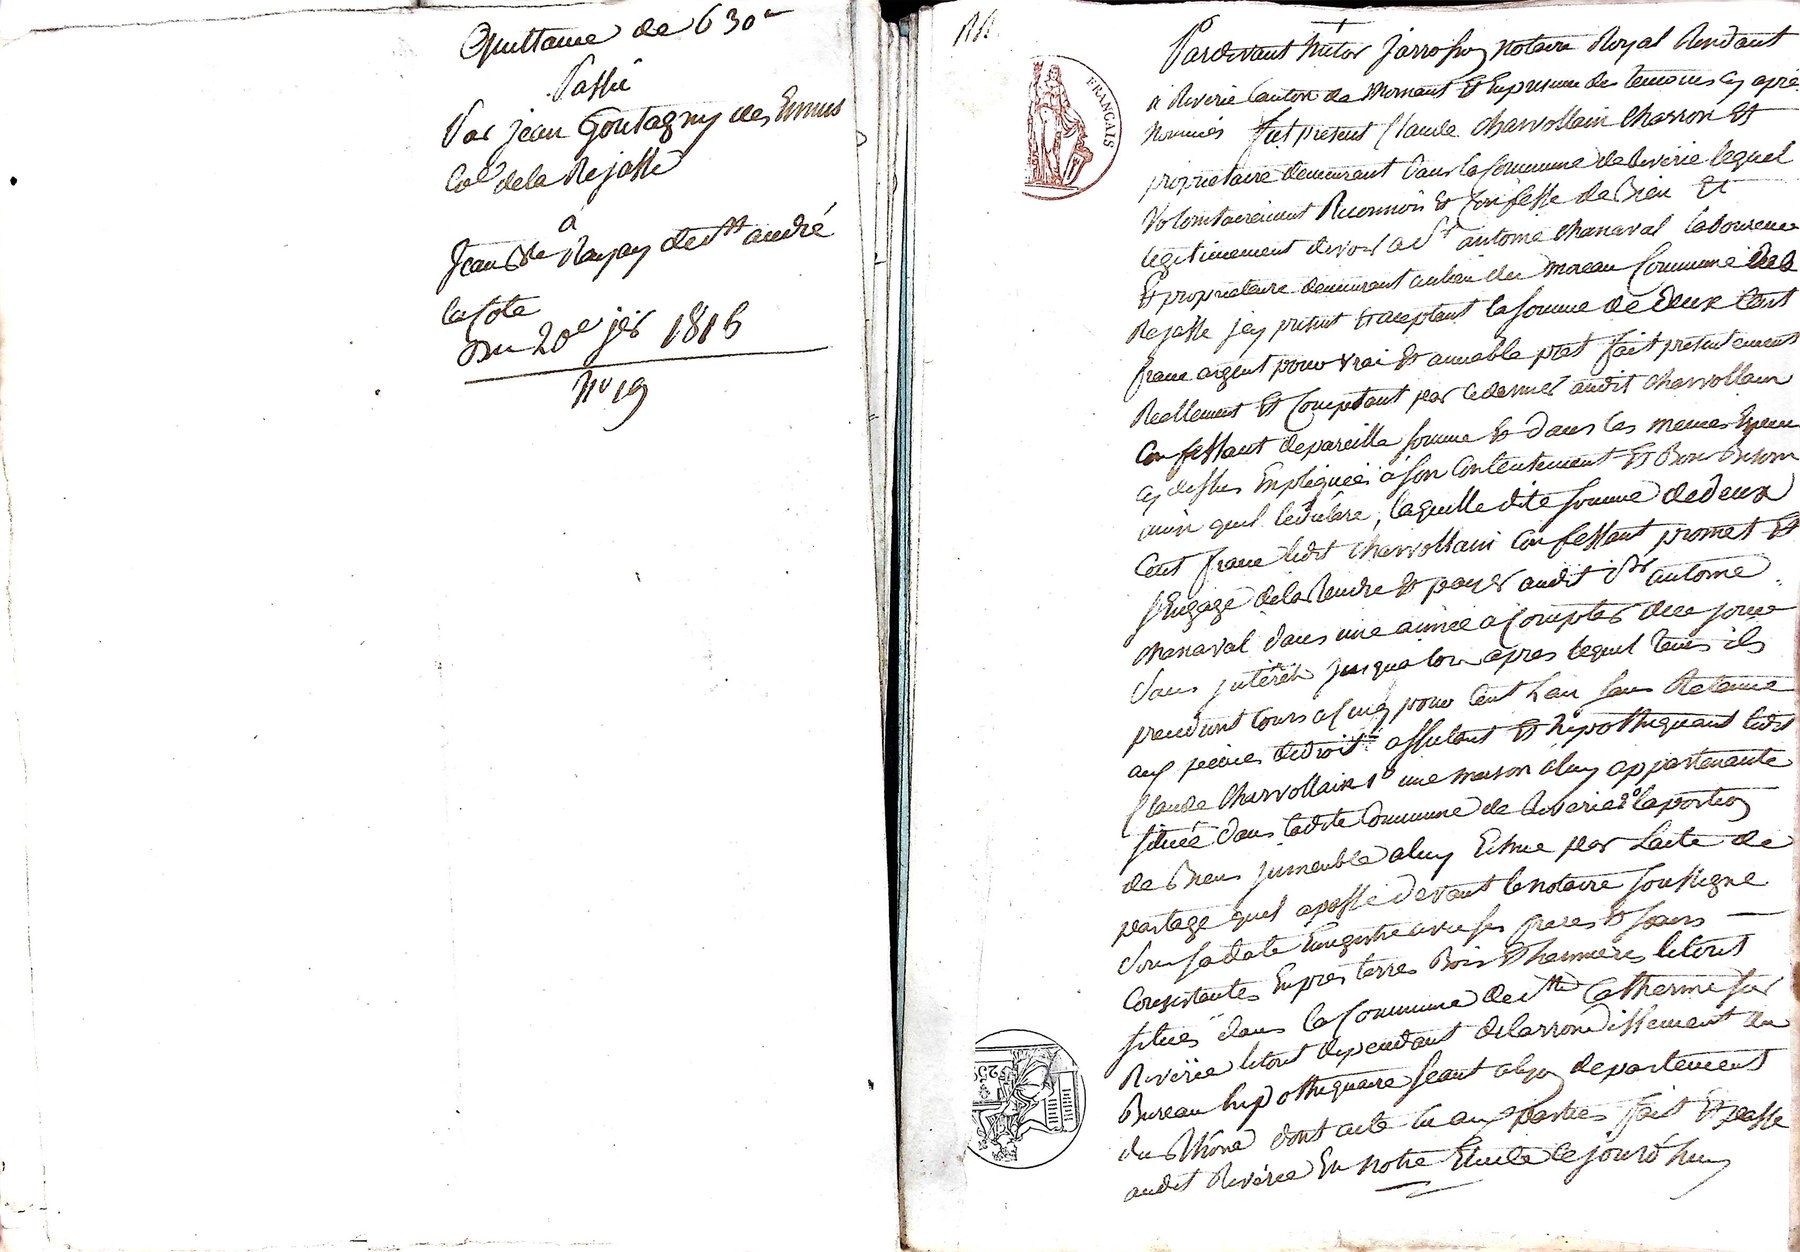 Quittance de 630
Passé
Par jean Goutagny des
de la Rejasse
à
Jean de St andré
la Cote
Du 20e jer 1815
No 19
Pardevant Victor Jarrosson notaire Royal Residant
à Riverie Canton de Mornant Et En presence des temoins cy apres
Nommés fut present Claude Charvollain Charron Et
proprietaire demeurant dans la Commune de Riverie lequel
Volontairement Reconnoit Et Confesse de Bien Et
legitimement devoir a Sr antoine Chanaval laboureur
Et proprietaire demeurant au lieu du moreau Commune de la
Rejasse icy present Et aceptant la somme de deux Cent
franc argent pour vrai Et amiable pret fait presentement
Reellement Et Comptant par ce dernier audit Charvollain
Confessant de pareille somme Et dans les memes
cy dessus Expliquées a son Contentement Et
ainsi quil le déclare, laquelle dite somme de deux
Cent franc ledit Charvollain Confessant promet Et
s'Engage de la Rendre Et payer audit Sr antoine
Chanaval dans une année a Compter de ce jour
Sans jntérêt jusqualors apres lequel tems ils
prendront Cours a Cinq pour Cent L'an sans Retenue
aux peines de droit affectant Et hipothéquant ledit
Claude Charvollain 1o une maison a luy appartenante
située dans ladite Commune de Riverie 2o la portion
de Biens jmmeuble a luy Echue par L'acte de
partage quil a passé devant le notaire soussigné
Sous sa date Enregistré avec ses freres Et sœurs
Consistantes En pres terres Bois Et hermieres le tout
situés dans la Commune de Ste Catherine sur
Riverie le tout dependant de l'arrondissement du
Bureau hipothequaire seant a lyon departement
du Rhône dont acte lu aux parties fait Et passé
audit Riverie En notre Etude le jourd'huy
FRANCAIS